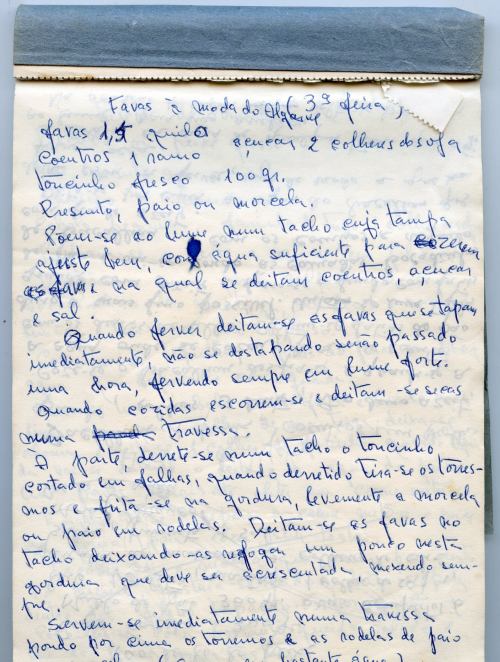 Favas à moda do Algarve (3ª feira)
favas 1,5 quilo açucar 2 colheres de sopa
coentros 1 ramo
toucinho fresco 100 gr.
Presunto, paio ou morcela.
Poem-se ao lume num tacho cuja tampa
ajuste bem, com água suficiente para cozerem
as favas na qual se deitam coentros, açucar
e sal.
Quando ferver deitam-se as favas que se tapam
imediatamente, não se destapando senão passado
uma hora, fervendo sempre em lume forte.
Quando cozidas escorrem-se e deitam-se secas
numa travessa.
À parte, derrete-se num tacho o toucinho
cortado em falhas, quando derretido tira-se os torres-
mos e frita-se na gordura, levemente a morcela
ou paio em rodelas. Deitam-se as favas no
tacho deixando-as refogar um pouco nesta
gordura que deve ser acrescentada, mexendo sem-
pre.
Servem-se imediatamente numa travessa
pondo por cima os torresmos e as rodelas de paio
bastante água)